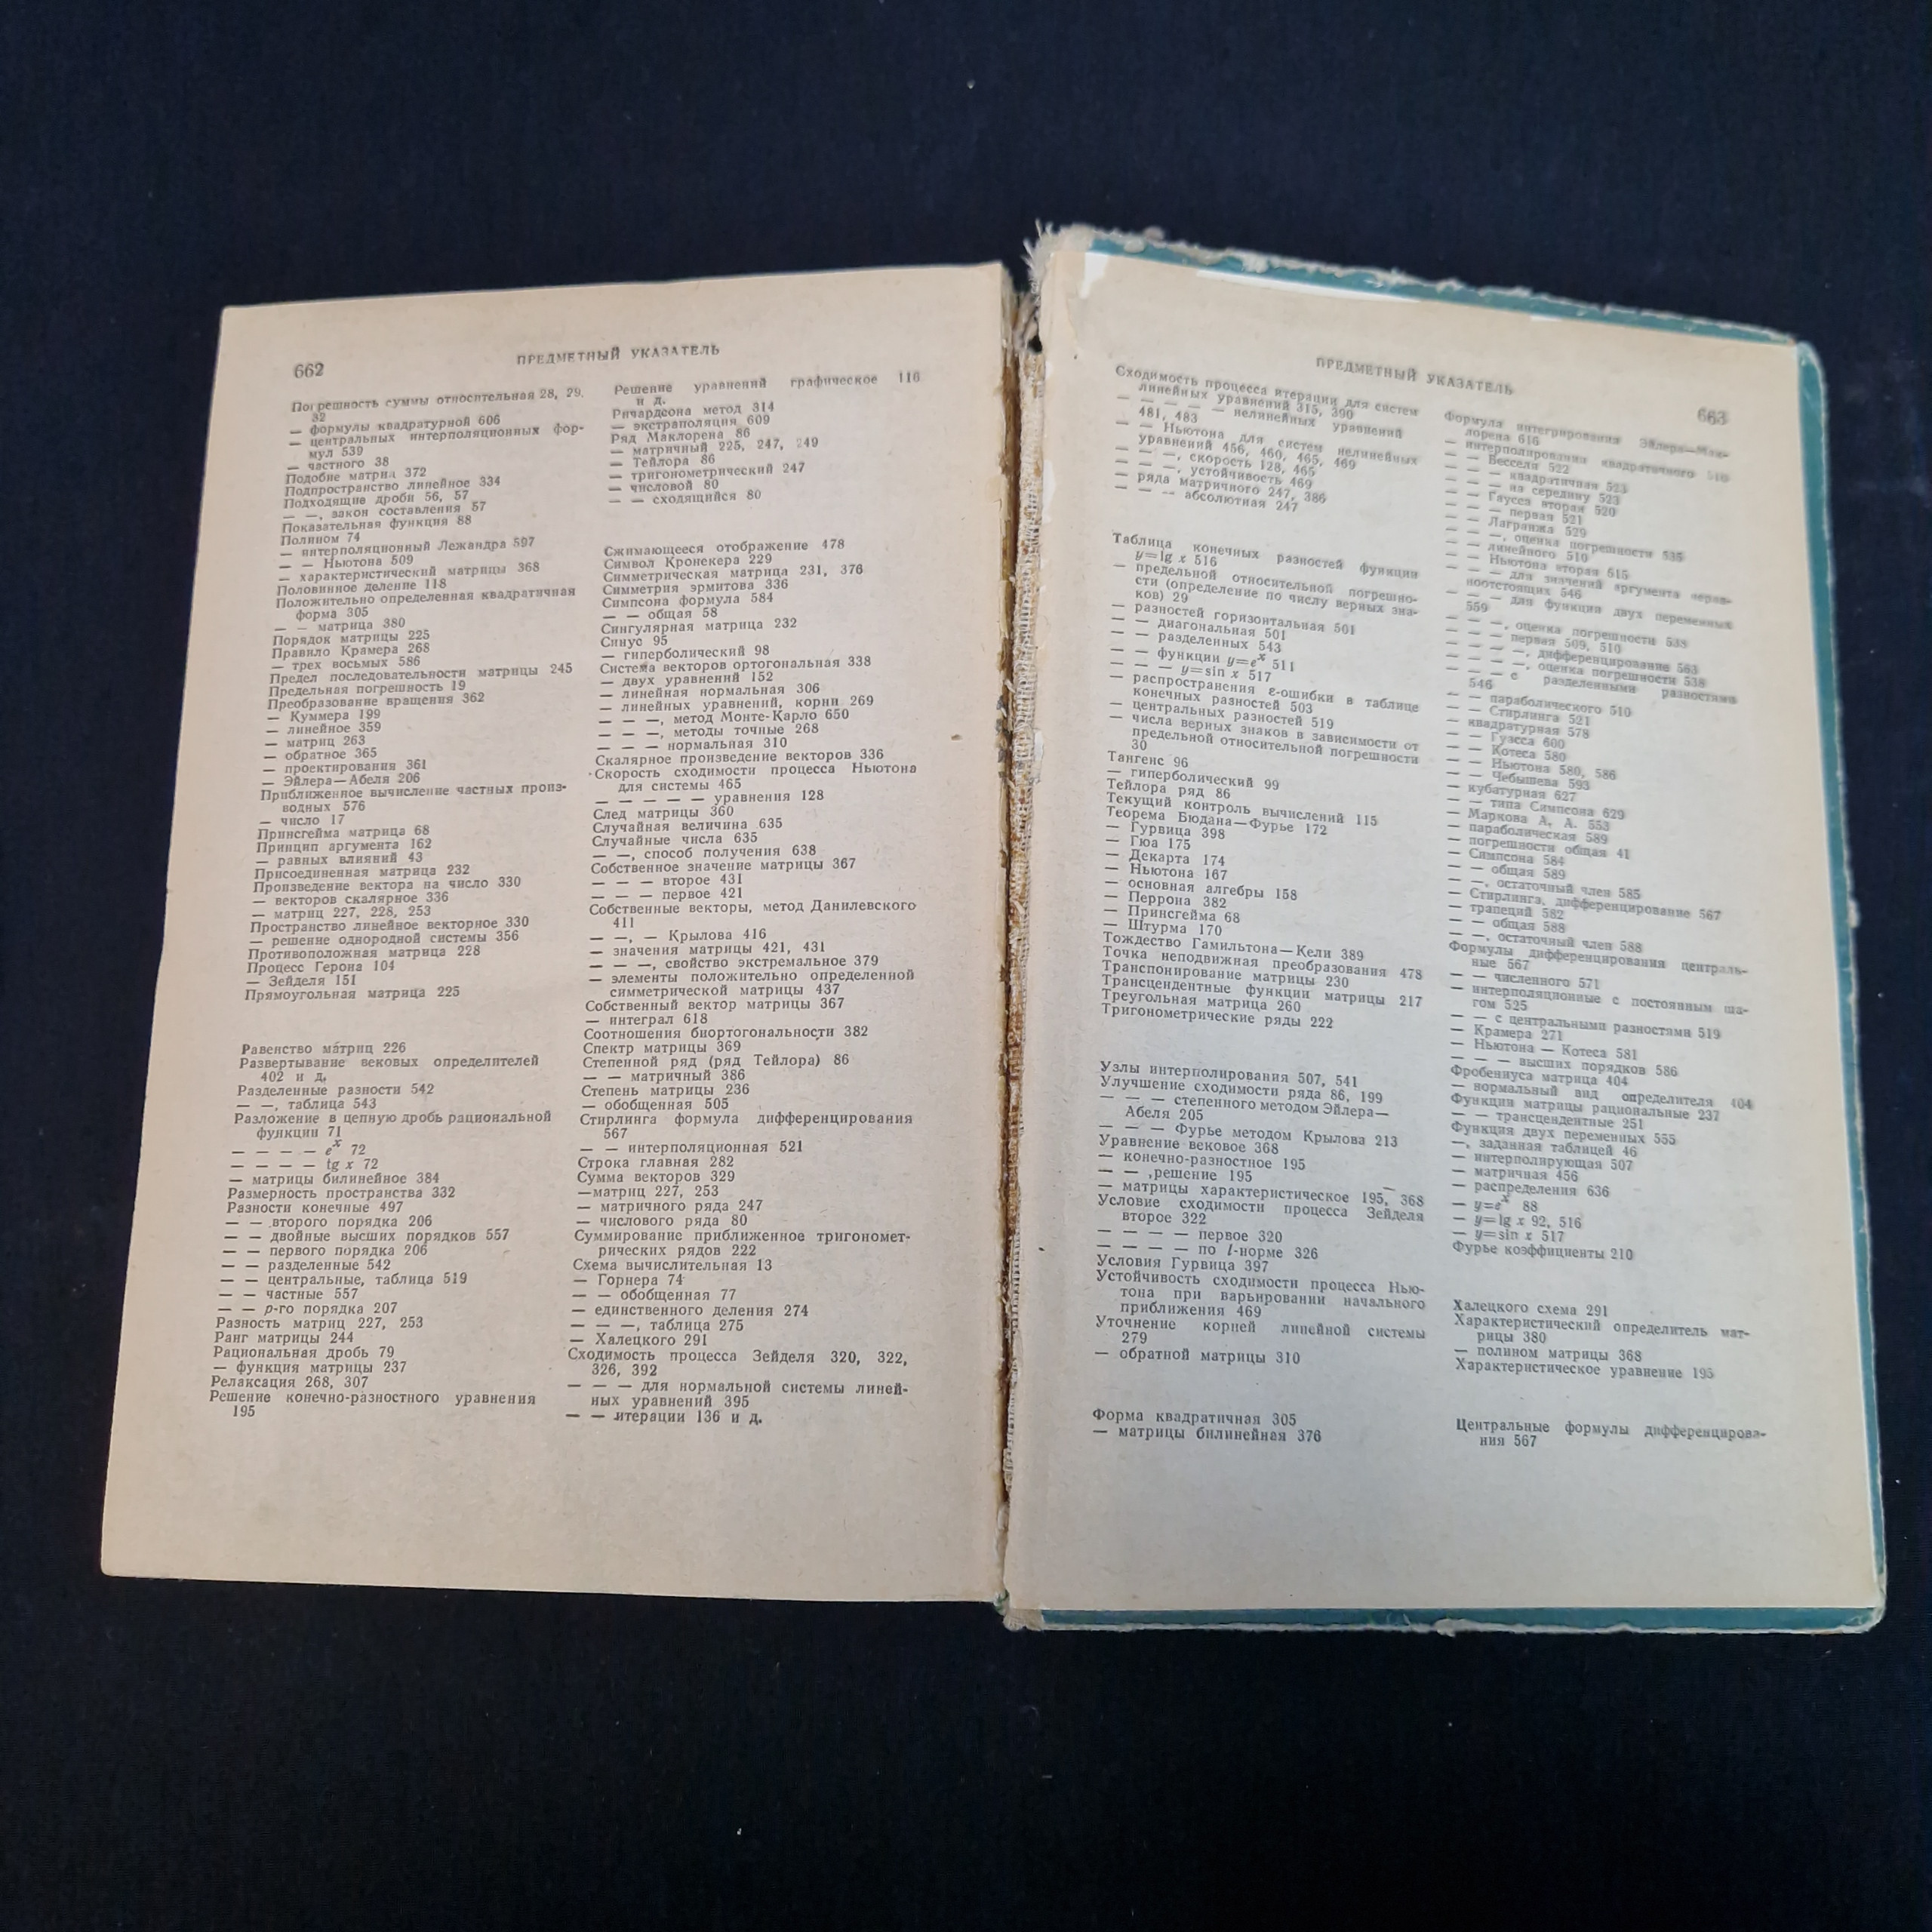 662
ПРЕДМЕТНЫЙ УКАЗАТЕЛЬ
Погрешность суммы относительная 28, 29,
32
— формулы квадратурной 606
— центральных интерполяционных фор-
мул 539
— частного 38
Подобие матриц 372
Подпространство линейное 334
Подходящие дроби 56, 57
— —, закон составления 57
Показательная функция 88
Полином 74
— интерполяционный Лежандра 597
— — Ньютона 509
— характеристический матрицы 368
Половинное деление 118
Положительно определенная квадратичная
форма 305
— — матрица 380
Порядок матрицы 225
Правило Крамера 268
— трех восьмых 586
Предел последовательности матрицы 245
Предельная погрешность 19
Преобразование вращения 362
— Куммера 199
— линейное 359
— матриц 263
— обратное 365
— проектирования 361
— Эйлера—Абеля 206
Приближенное вычисление частных произ-
водных 576
— число 17
Принсгейма матрица 68
Принцип аргумента 162
— равных влияний 43
Присоединенная матрица 232
Произведение вектора на число 330
— векторов скалярное 336
— матриц 227, 228, 253
Пространство линейное векторное 330
— решение однородной системы 356
Противоположная матрица 228
Процесс Герона 104
— Зейделя 151
Прямоугольная матрица 225
Равенство матриц 226
Развертывание вековых определителей
402 и д.
Разделенные разности 542
— —, таблица 543
Разложение в цепную дробь рациональной
функции 71
— — — — eˣ 72
— — — — tg x 72
— матрицы билинейное 384
Размерность пространства 332
Разности конечные 497
— — второго порядка 206
— — двойные высших порядков 557
— — первого порядка 206
— — разделенные 542
— — центральные, таблица 519
— — частные 557
— — p-го порядка 207
Разность матриц 227, 253
Ранг матрицы 244
Рациональная дробь 79
— функция матрицы 237
Релаксация 268, 307
Решение конечно-разностного уравнения
195
Решение уравнений графическое 116
и д.
Ричардсона метод 314
— экстраполяция 609
Ряд Маклорена 86
— матричный 225, 247, 249
— Тейлора 86
— тригонометрический 247
— числовой 80
— — сходящийся 80
Сжимающееся отображение 478
Символ Кронекера 229
Симметрическая матрица 231, 376
Симметрия эрмитова 336
Симпсона формула 584
— — общая 58
Сингулярная матрица 232
Синус 95
— гиперболический 98
Система векторов ортогональная 338
— двух уравнений 152
— линейная нормальная 306
— линейных уравнений, корни 269
— — —, метод Монте-Карло 650
— — —, методы точные 268
— — — нормальная 310
Скалярное произведение векторов 336
Скорость сходимости процесса Ньютона
для системы 465
— — — — — уравнения 128
След матрицы 360
Случайная величина 635
Случайные числа 635
— —, способ получения 638
Собственное значение матрицы 367
— — — второе 431
— — — первое 421
Собственные векторы, метод Данилевского
411
— —, — Крылова 416
— значения матрицы 421, 431
— — —, свойство экстремальное 379
— элементы положительно определенной
симметрической матрицы 437
Собственный вектор матрицы 367
— интеграл 618
Соотношения биортогональности 382
Спектр матрицы 369
Степенной ряд (ряд Тейлора) 86
— — матричный 386
Степень матрицы 236
— обобщенная 505
Стирлинга формула дифференцирования
567
— — интерполяционная 521
Строка главная 282
Сумма векторов 329
—матриц 227, 253
— матричного ряда 247
— числового ряда 80
Суммирование приближенное тригономет-
рических рядов 222
Схема вычислительная 13
— Горнера 74
— — обобщенная 77
— единственного деления 274
— — —, таблица 275
— Халецкого 291
Сходимость процесса Зейделя 320, 322,
326, 392
— — — для нормальной системы линей-
ных уравнений 395
— — итерации 136 и д.
ПРЕДМЕТНЫЙ УКАЗАТЕЛЬ
663
Сходимость процесса итерации для систем
линейных уравнений 315, 390
— — — — — нелинейных уравнений
481, 483
— — Ньютона для систем нелинейных
уравнений 456, 460, 465, 469
— — —, скорость 128, 465
— — —, устойчивость 469
— ряда матричного 247, 386
— — — абсолютная 247
Таблица конечных разностей функции
y=lg x 516
— предельной относительной погрешно-
сти (определение по числу верных зна-
ков) 29
— разностей горизонтальная 501
— — диагональная 501
— — разделенных 543
— — функции y=eˣ 511
— — — y=sin x 517
— распространения ε-ошибки в таблице
конечных разностей 503
— центральных разностей 519
— числа верных знаков в зависимости от
предельной относительной погрешности
30
Тангенс 96
— гиперболический 99
Тейлора ряд 86
Текущий контроль вычислений 115
Теорема Бюдана—Фурье 172
— Гурвица 398
— Гюа 175
— Декарта 174
— Ньютона 167
— основная алгебры 158
— Перрона 382
— Принсгейма 68
— Штурма 170
Тождество Гамильтона—Кели 389
Точка неподвижная преобразования 478
Транспонирование матрицы 230
Трансцендентные функции матрицы 217
Треугольная матрица 260
Тригонометрические ряды 222
Узлы интерполирования 507, 541
Улучшение сходимости ряда 86, 199
— — — степенного методом Эйлера—
Абеля 205
— — — Фурье методом Крылова 213
Уравнение вековое 368
— конечно-разностное 195
— — ,решение 195
— матрицы характеристическое 195, 368
Условие сходимости процесса Зейделя
второе 322
— — — — первое 320
— — — — по l-норме 326
Условия Гурвица 397
Устойчивость сходимости процесса Нью-
тона при варьировании начального
приближения 469
Уточнение корней линейной системы
279
— обратной матрицы 310
Форма квадратичная 305
— матрицы билинейная 376
Формула интегрирования Эйлера—Мак-
лорена 616
— интерполирования квадратичного
— — Бесселя 522
— — — квадратичная 523
— — — на середину 523
— — Гаусса вторая 520
— — — первая 521
— — Лагранжа 529
— — —, оценка погрешности 535
— — линейного 510
— — Ньютона вторая 515
— — — для значений аргумента нерав-
ноотстоящих 546
— — — для функции двух переменных
559
— — —, оценка погрешности 538
— — — первая 509, 510
— — — —, дифференцирование 563
— — — —, оценка погрешности 538
— — — с разделенными разностями
546
— — параболического 510
— — Стирлинга 521
— квадратурная 578
— — Гаусса 600
— — Котеса 580
— — Ньютона 580, 586
— — Чебышева 593
— кубатурная 627
— — типа Симпсона 629
— Маркова А. А. 553
— параболическая 589
— погрешности общая 41
— Симпсона 584
— — общая 589
— —, остаточный член 585
— Стирлинга, дифференцирование 567
— трапеций 582
— — общая 588
— —, остаточный член 588
Формулы дифференцирования централь-
ные 567
— — численного 571
— интерполяционные с постоянным ша-
гом 525
— — с центральными разностями 519
— Крамера 271
— Ньютона — Котеса 581
— — — высших порядков 586
Фробениуса матрица 404
— нормальный вид определителя 404
Функции матрицы рациональные 237
— — трансцендентные 251
Функция двух переменных 555
—, заданная таблицей 46
— интерполирующая 507
— матричная 456
— распределения 636
— y=eˣ 88
— y=lg x 92, 516
— y=sin x 517
Фурье коэффициенты 210
Халецкого схема 291
Характеристический определитель мат-
рицы 380
— полином матрицы 368
Характеристическое уравнение 195
Центральные формулы дифференцирова-
ния 567